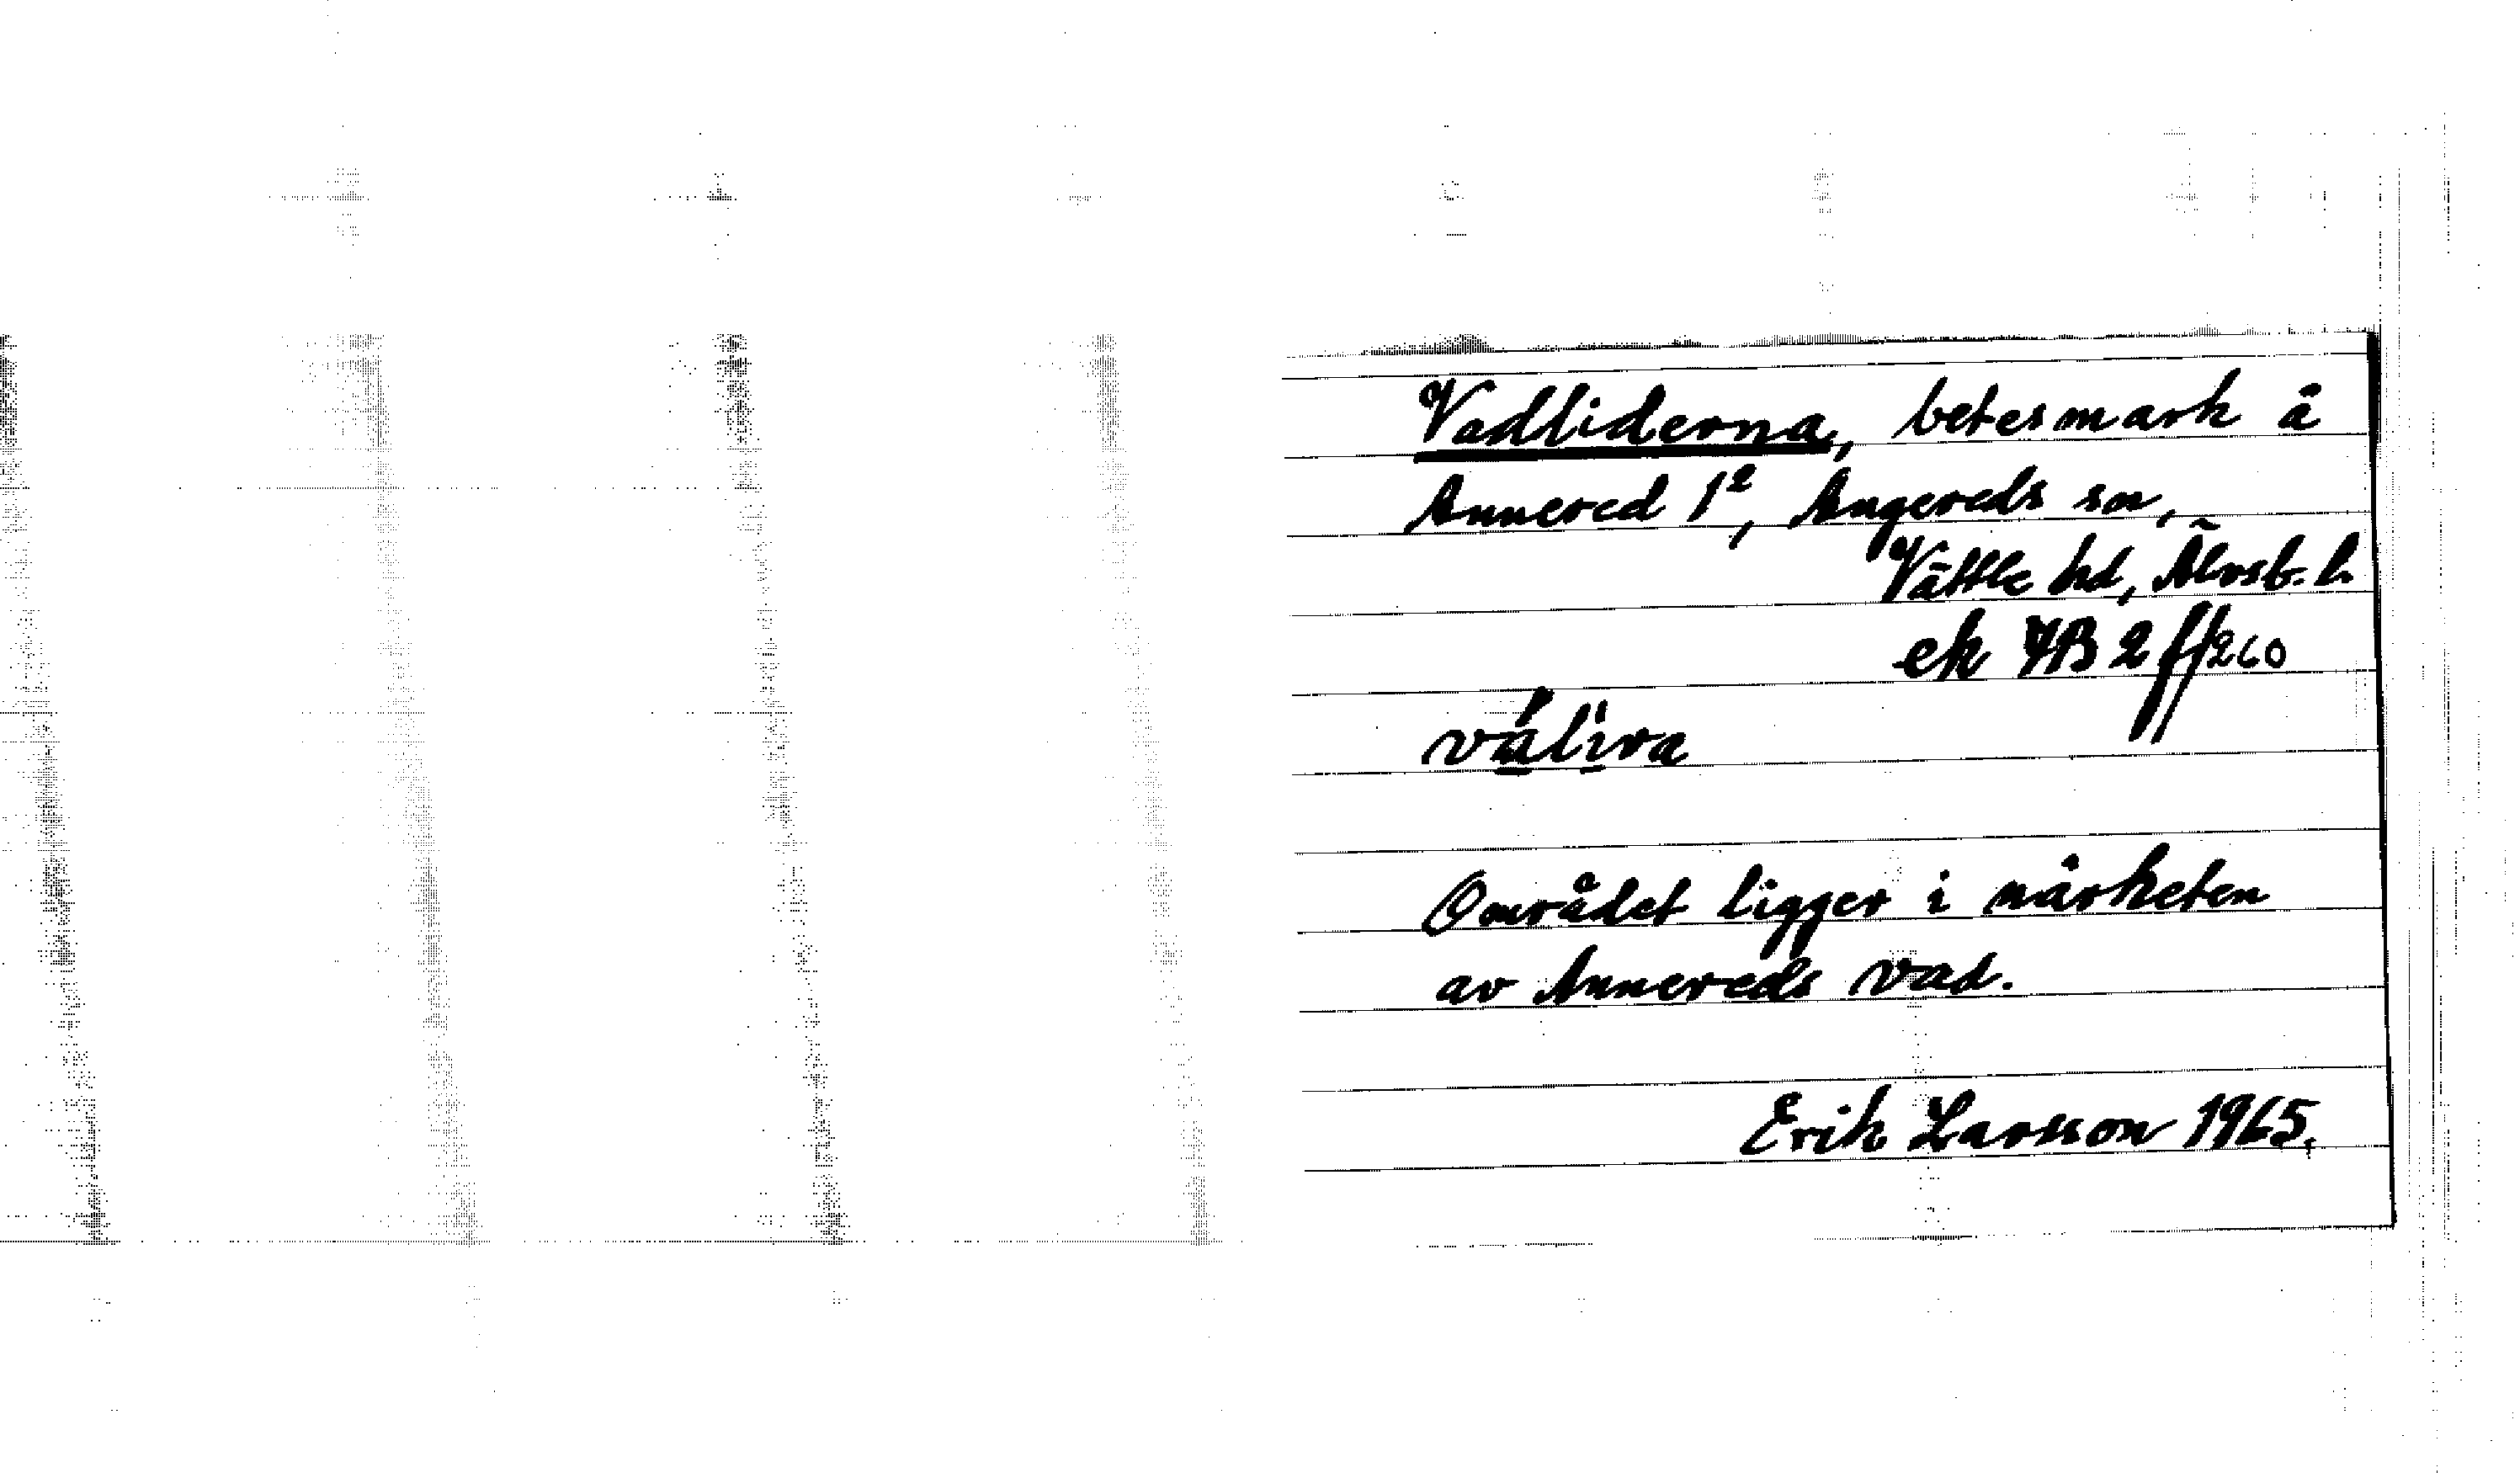 Vadliderna, betesmark å
Annered 1², Angereds sn,
Vättle hd, Älvsb. l.
ek 7B 2 f/260
váli̇̀ra
Området ligger i närheten
av Annereds vad.
Erik Larsson 1965.